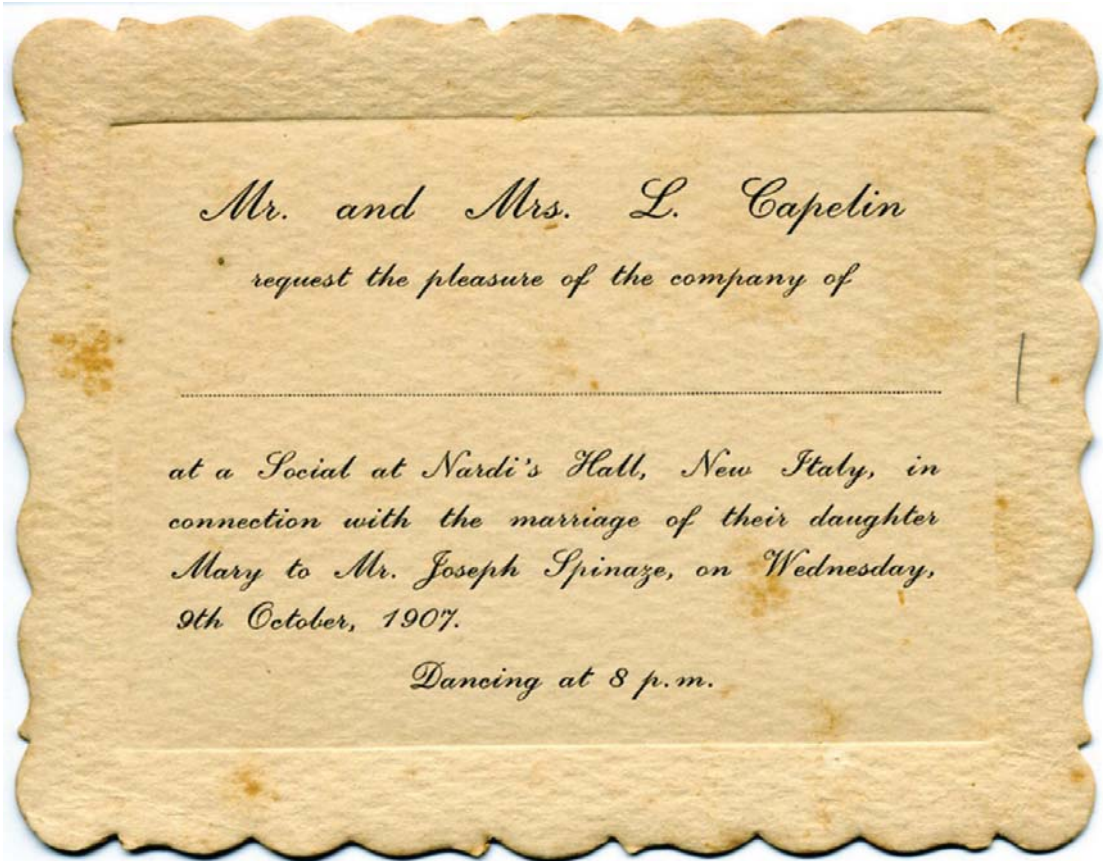 Mr. and Mrs. L. Capelin
request the pleasure of the company of
at a Social at Nardi's Hall, New Italy, in
connection with the marriage of their daughter
Mary to Mr. Joseph Spinaze, on Wednesday,
9th October, 1907.
Dancing at 8 p.m.